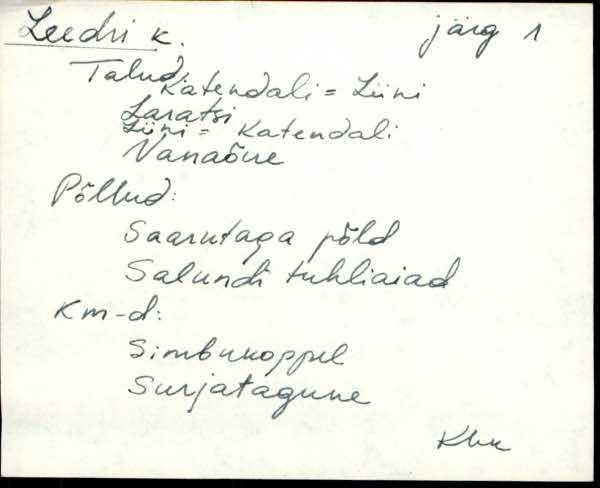 Leedri k. järg 1
Talud
Katendali = Liini
Laratsi
Liini = Katendali
Vanaõue
Põllud:
Saarutaga põld
Salundi tuhliaiad
Km-d:
Simbukoppel
Surjatagune